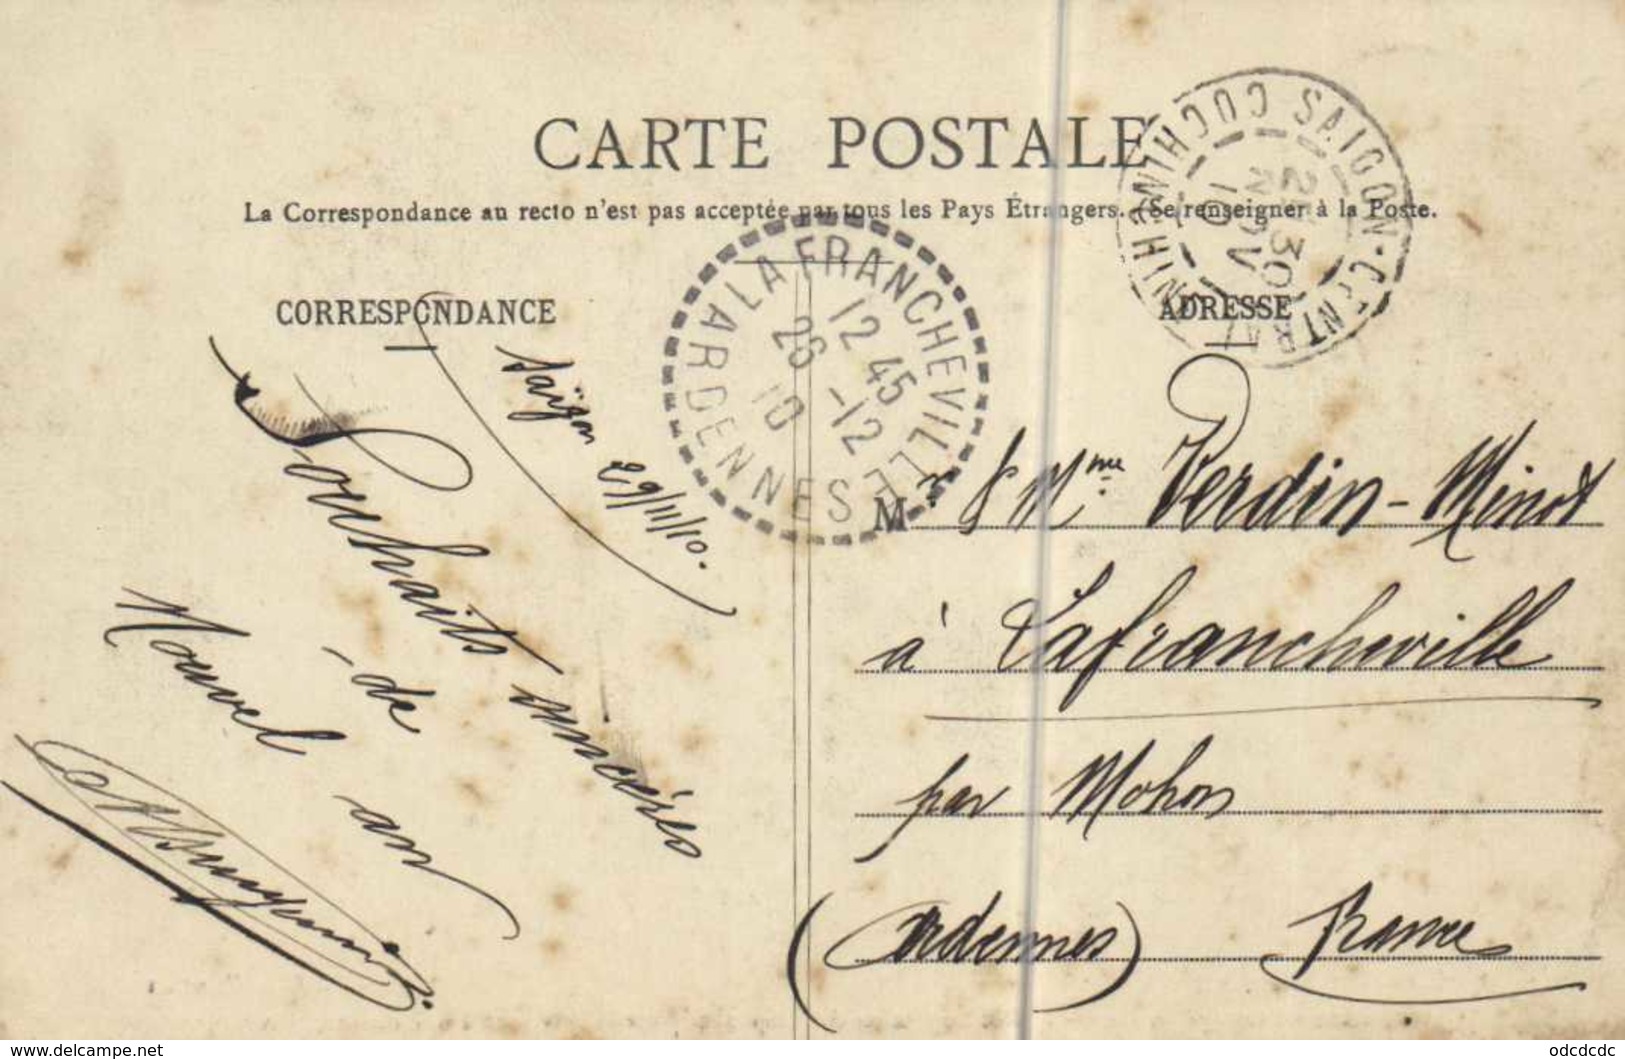 CARTE POSTALE
La Correspondance au recto n'est pas acceptée par tous les Pays Étrangers. (Se renseigner à la Poste.
CORRESPONDANCE
ADRESSE
SAIGON-CENTRAL COCHINCHINE
30 NOV
10
LA FRANCHEVILLE
12 45
26 -12
10
ARDENNES
Saïgon 29/11/10.
Souhaits sincères
de
Nouvel an
M r & Mme Verdin-Minot
à Lafrancheville
par Mohon
(Ardennes) France
www.delcampe.net
odcdcdc